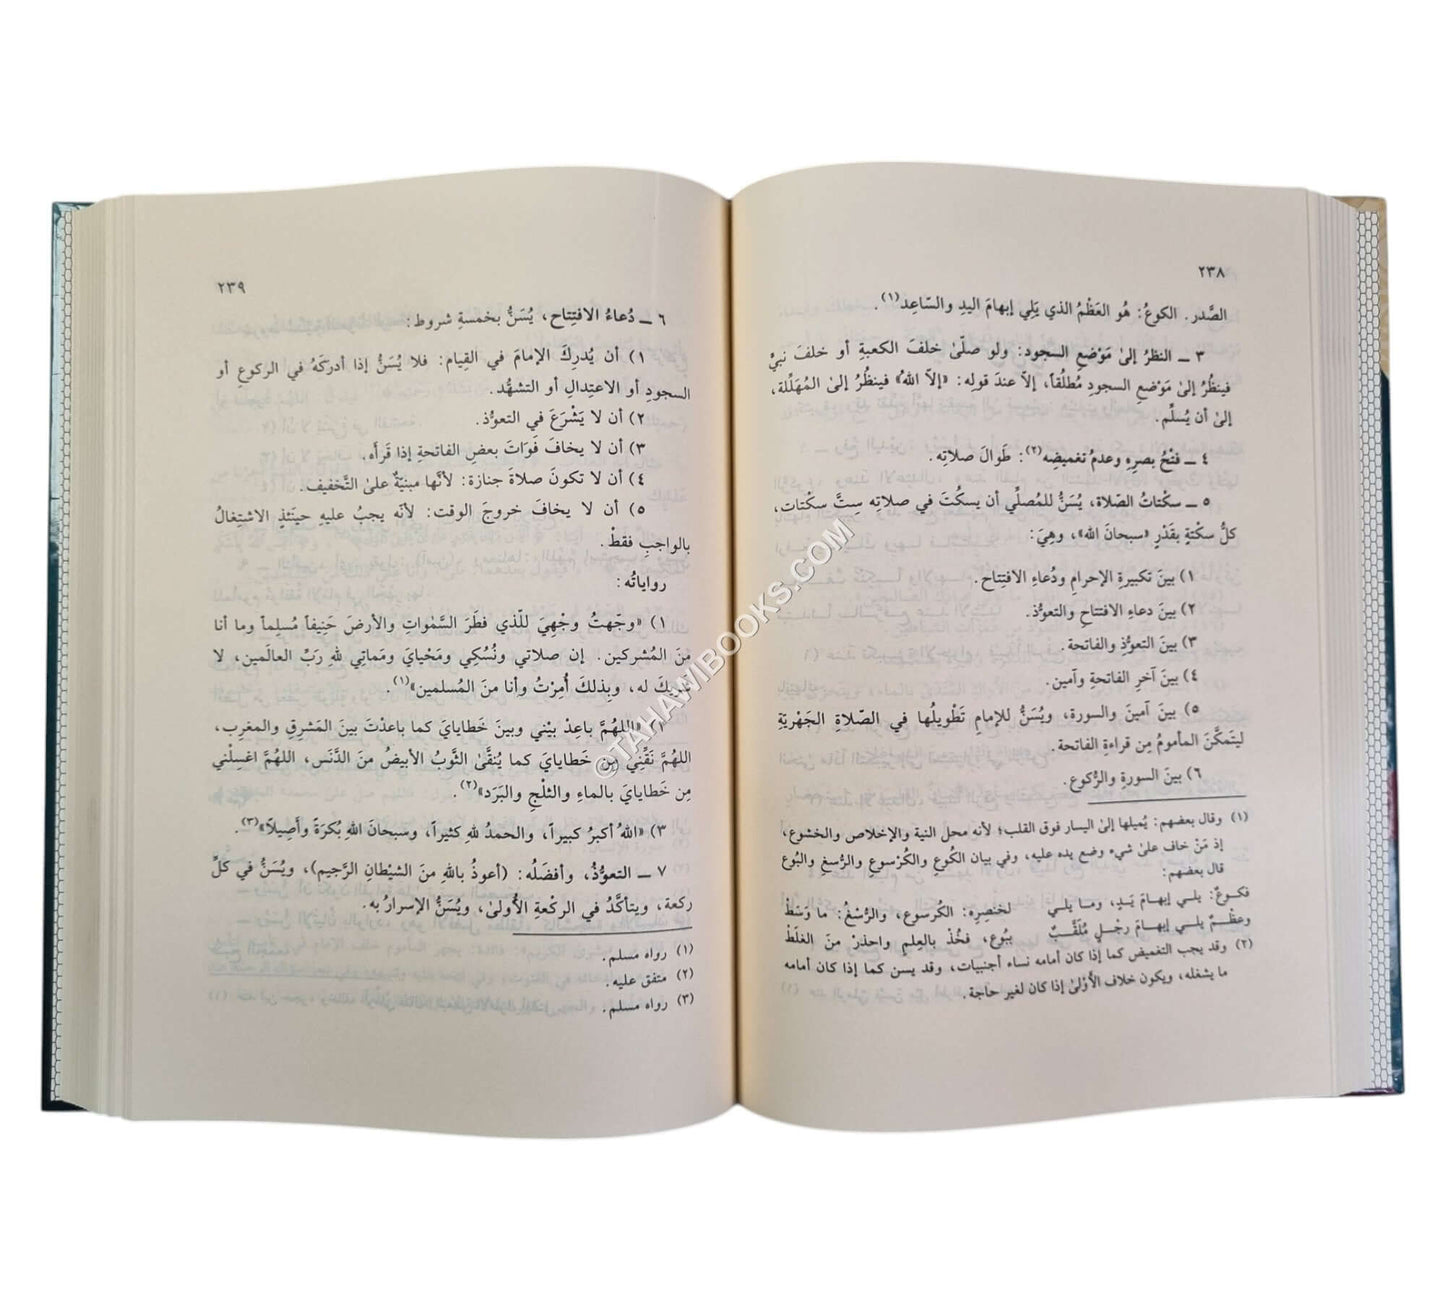 ٢٣٨
الصَّدر. الكوعُ: هُو العَظْمُ الذي يَلِي إبهامَ اليدِ والسّاعِد(١).
٣ ـ النظرُ إلىٰ مَوْضعِ السجود: ولو صلّىٰ خلفَ الكعبةِ أو خلفَ نبيٍّ
فينظُرُ إلىٰ مَوْضعِ السجودِ مُطلُقاً، إلاّ عندَ قولِه: «إلاّ اللهُ» فينظُرُ إلىٰ المُهَلِّلة،
إلىٰ أن يُسلِّم.
٤ ـ فتْحُ بصرِهِ وعدمُ تغميضِه(٢): طَوالَ صلاتِه.
٥ ـ سكْتاتُ الصَّلاة، يُسَنُّ للمُصلِّي أن يسكُتَ في صلاتِه سِتَّ سكْتات،
كلُّ سكْتةٍ بقَدْرِ «سبحانَ الله»، وهِيَ:
١) بينَ تكبيرةِ الإحرامِ ودُعاءِ الافتِتاح.
٢) بينَ دعاءِ الافتتاح والتعوُّذ.
٣) بينَ التعوُّذِ والفاتحة.
٤) بينَ آخرِ الفاتحةِ وآمين.
٥) بينَ آمينَ والسورة، ويُسَنُّ للإمامِ تَطْويلُها في الصّلاةِ الجَهْريّةِ
ليتَمكَّنَ المأمومُ مِن قراءةِ الفاتحة.
٦) بينَ السورةِ والرُّكوع.
(١) وقال بعضهم: يُميلها إلىٰ اليسار فوق القلب؛ لأنه محل النية والإخلاص والخشوع،
إذ مَنْ خاف علىٰ شيء وضع يده عليه، وفي بيان الكُوعِ والكُرْسوعِ والرُّسغِ والبُوع
قال بعضهم:
فكوعٌ: يلي إبهامَ يَدٍ، وما يلي لخنصِرِه: الكُرسوع، والرُّسْغُ: ما وَسَطْ
وعظْمٌ يلي إبهامَ رجْلٍ مُلَقَّبٌ ببُوع، فخُذْ بالعِلمِ واحذرْ منَ الغلَطْ
(٢) وقد يجب التغميض كما إذا كان أمامه نساء أجنبيات، وقد يسن كما إذا كان أمامه
ما يشغله، ويكون خلاف الأَوْلىٰ إذا كان لغير حاجة.
٢٣٩
٦ ـ دُعاءُ الافتِتاح، يُسَنُّ بخمسةِ شروط:
١) أن يُدرِكَ الإمامَ في القِيام: فلا يُسَنُّ إذا أدركَهُ في الركوعِ أو
السجودِ أو الاعتِدالِ أو التشهُّد.
٢) أن لا يَشْرَعَ في التعوُّذ.
٣) أن لا يخافَ فَوَاتَ بعضِ الفاتحةِ إذا قرَأَه.
٤) أن لا تكونَ صلاةَ جنازة: لأنَّها مبنيّةٌ علىٰ التَّخفيف.
٥) أن لا يخافَ خروجَ الوقت: لأنّه يجبُ عليهِ حينَئذٍ الاشتِغالُ
بالواجبِ فقطْ.
رواياتُه:
١) «وجّهتُ وجْهِيَ للّذي فطَرَ السَّمٰواتِ والأرضَ حَنِيفاً مُسلِماً وما أنا
منَ المُشركين. إن صلاتي ونُسُكِي ومَحْيايَ ومَماتِي للهِ رَبِّ العالَمين، لا
شريكَ له، وبِذلكَ أُمِرْتُ وأنا منَ المُسلمين»(١).
٢) «اللهُمَّ باعِدْ بيْني وبينَ خَطايايَ كما باعدْتَ بينَ المَشرِقِ والمغرِب،
اللهُمَّ نَقِّنِي مِن خَطايايَ كما يُنقَّىٰ الثَّوبُ الأبيضُ منَ الدَّنَس، اللهُمَّ اغسِلْني
مِن خَطايايَ بالماءِ والثلْجِ والبَرَد»(٢).
٣) «اللهُ أكبرُ كبيراً، والحمدُ للهِ كثيراً، وسبحانَ اللهِ بُكرَةً وأَصِيلاً»(٣).
٧ ـ التعوُّذُ، وأفضَلُه: (أعوذُ باللهِ منَ الشيْطانِ الرَّجيم)، ويُسَنُّ في كلِّ
ركعة، ويتأكّدُ في الركْعةِ الأُولىٰ، ويُسَنُّ الإسرارُ به.
(١) رواه مسلم.
(٢) متفق عليه.
(٣) رواه مسلم.
©TAHAWIBOOKS.COM